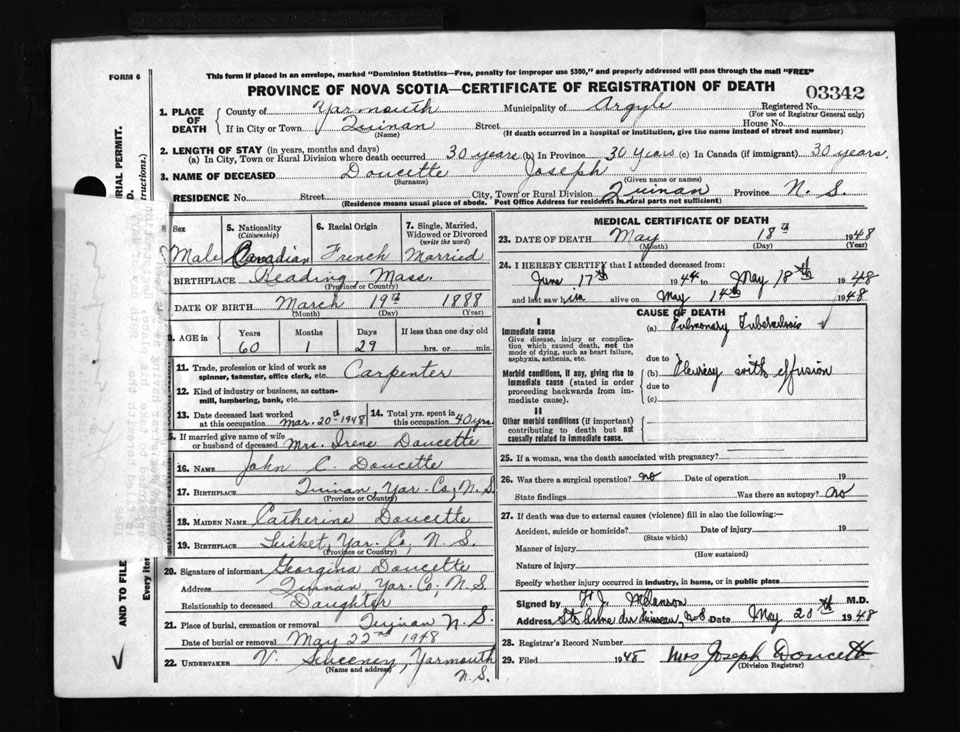 FORM 6
This form if placed in an envelope, marked "Dominion Statistics—Free, penalty for improper use $300," and properly addressed will pass through the mail "FREE"
PROVINCE OF NOVA SCOTIA—CERTIFICATE OF REGISTRATION OF DEATH
03342
1. PLACE OF DEATH County of Yarmouth Municipality of Argyle Registered No.
(For use of Registrar General only)
If in City or Town Quinan Street House No.
(Name) (If death occurred in a hospital or institution, give the name instead of street and number)
2. LENGTH OF STAY (in years, months and days)
(a) In City, Town or Rural Division where death occurred 30 years (b) In Province 30 years (c) In Canada (if immigrant) 30 years.
3. NAME OF DECEASED Doucette Joseph
(Surname) (Given name or names)
RESIDENCE No. Street City, Town or Rural Division Quinan Province N. S.
(Residence means usual place of abode. Post Office Address for residents in rural parts not sufficient)
Sex 5. Nationality (Citizenship) 6. Racial Origin 7. Single, Married, Widowed or Divorced (write the word)
Male Canadian French Married
BIRTHPLACE Reading Mass.
(Province or Country)
DATE OF BIRTH March 19th 1888
(Month) (Day) (Year)
AGE in Years Months Days If less than one day old
60 1 29 hrs. or min.
11. Trade, profession or kind of work as spinner, teamster, office clerk, etc. Carpenter
12. Kind of industry or business, as cotton-mill, lumbering, bank, etc.
13. Date deceased last worked at this occupation Mar. 20th 1948 14. Total yrs. spent in this occupation 40 yrs.
5. If married give name of wife or husband of deceased Mrs. Irene Doucette
16. NAME John C. Doucette
17. BIRTHPLACE Quinan, Yar. Co, N. S.
(Province or Country)
18. MAIDEN NAME Catherine Doucette
19. BIRTHPLACE Tusket, Yar. Co, N. S.
(Province or Country)
20. Signature of informant Georgina Doucette
Address Quinan, Yar. Co, N. S.
Relationship to deceased Daughter
21. Place of burial, cremation or removal Quinan N. S.
Date of burial or removal May 22nd 1948
22. UNDERTAKER V. Sweeney, Yarmouth
(Name and address) N. S.
MEDICAL CERTIFICATE OF DEATH
23. DATE OF DEATH May 18th 1948
(Month) (Day) (Year)
24. I HEREBY CERTIFY that I attended deceased from:
June 17th 1944 to May 18th 1948
and last saw him alive on May 14th 1948
CAUSE OF DEATH
I
Immediate cause
Give disease, injury or complication which caused death, not the mode of dying, such as heart failure, asphyxia, asthenia, etc.
(a) Pulmonary Tuberculosis
due to
Morbid conditions, if any, giving rise to immediate cause (stated in order proceeding backwards from immediate cause).
(b) Pleurisy with effusion
due to
(c)
II
Other morbid conditions (if important) contributing to death but not causally related to immediate cause.
25. If a woman, was the death associated with pregnancy?
26. Was there a surgical operation? no Date of operation 19
State findings Was there an autopsy? no
27. If death was due to external causes (violence) fill in also the following:—
Accident, suicide or homicide? Date of injury 19
(State which)
Manner of injury
(How sustained)
Nature of injury
Specify whether injury occurred in industry, in home, or in public place
Signed by M.D.
Address Date May 20th 1948
28. Registrar's Record Number
29. Filed 1948 Mrs Joseph Doucette
(Division Registrar)
AND TO FILE
Every ite
URIAL PERMIT.
ructions.)